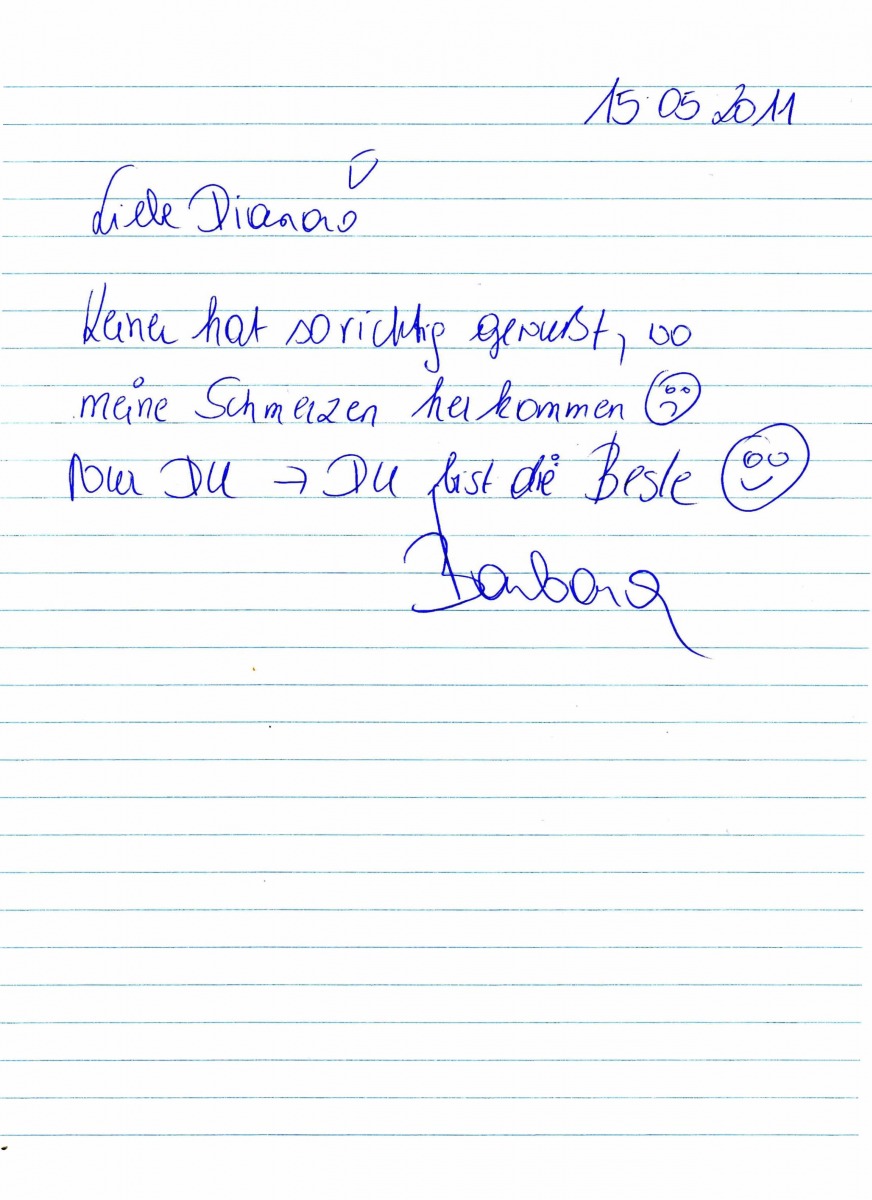 15.05.2011
Liebe Diana!
Keiner hat so richtig gewußt, wo
meine Schmerzen herkommen ☹
Nur DU → DU bist die Beste ☺
Barbara